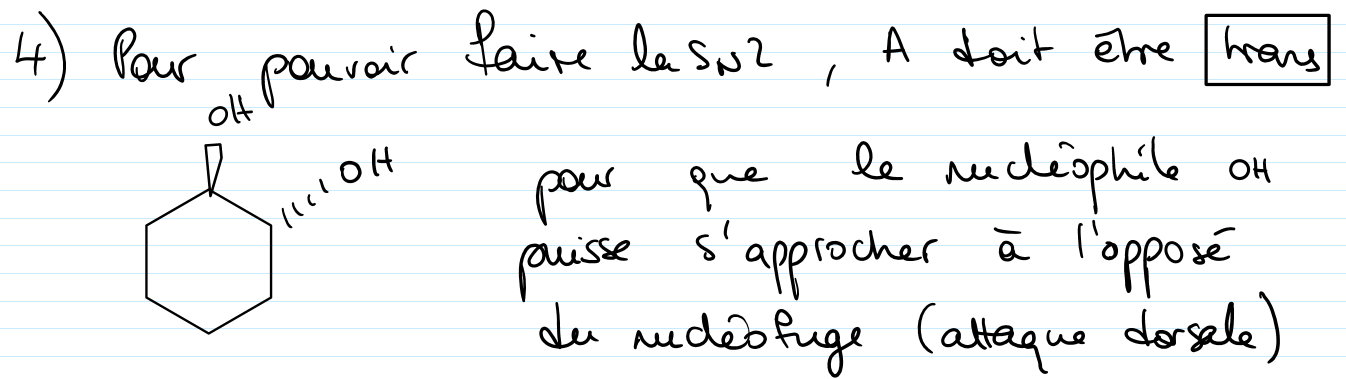 4) Pour pouvoir faire la SN2, A doit être trans
OH
OH
pour que le nucléophile OH
puisse s'approcher à l'opposé
du nucléofuge (attaque dorsale)